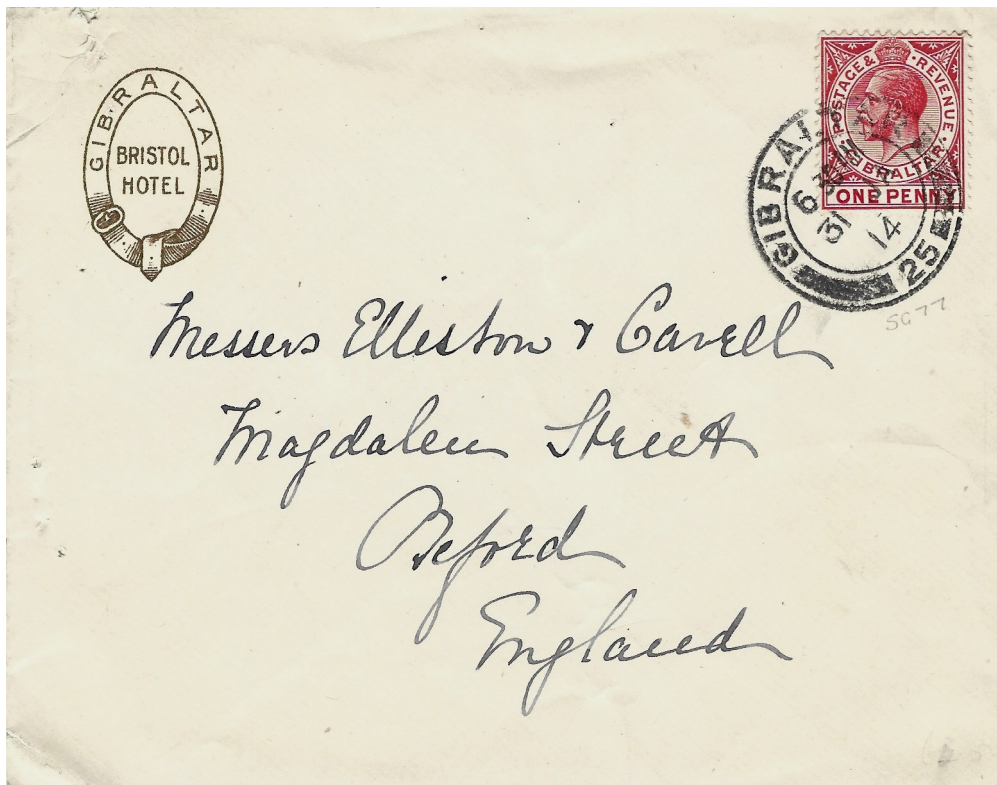 GIBRALTAR
BRISTOL
HOTEL
POSTAGE & REVENUE
GIBRALTAR
ONE PENNY
GIBRAL
6
31
14
25
SG 77
Messers Elliston & Cavell
Magdalen Street
Oxford
England